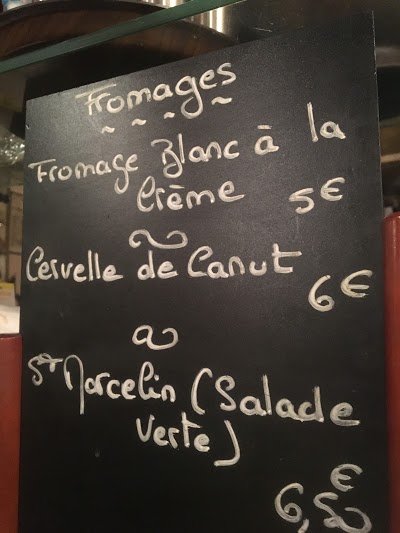 Fromages
Fromage Blanc à la
Crème 5€
Cervelle de Canut
6€
St Marcelin (Salade
verte)
6,5€